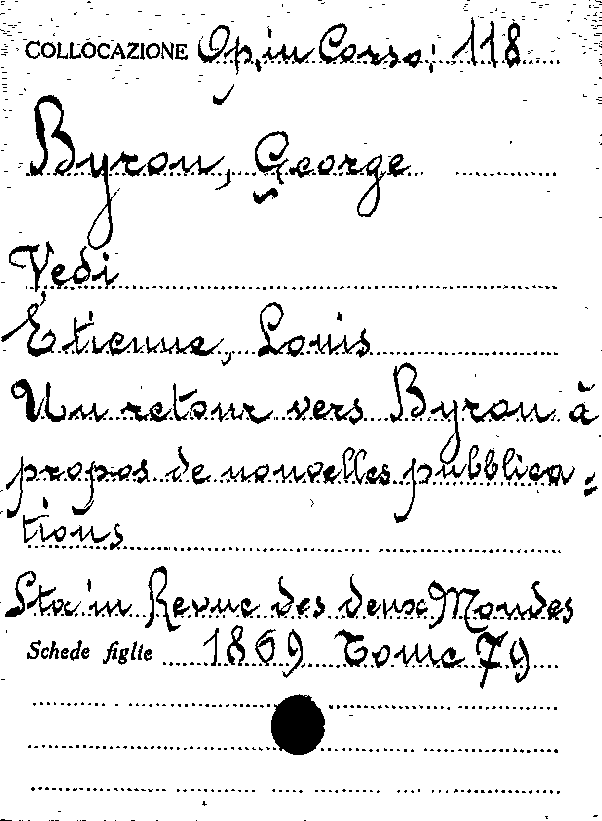 COLLOCAZIONE Op. in Corso; 118
Byron, George
Vedi
Etienne, Louis
Un retour vers Byron à
propos de nouvelles pubblica=
tions
Sta in Revue des deux Mondes
Schede figlie 1869 Tome 79